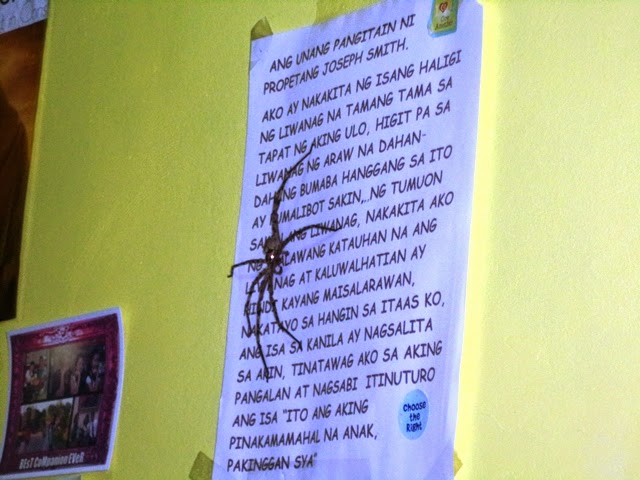 ANG UNANG PANGITAIN NI
PROPETANG JOSEPH SMITH.
AKO AY NAKAKITA NG ISANG HALIGI
NG LIWANAG NA TAMANG TAMA SA
TAPAT NG AKING ULO, HIGIT PA SA
LIWANAG NG ARAW NA DAHAN-
DAHANG BUMABA HANGGANG SA ITO
AY PUMALIBOT SAKIN,..NG TUMUON
SAKIN ANG LIWANAG, NAKAKITA AKO
NG DALAWANG KATAUHAN NA ANG
LIWANAG AT KALUWALHATIAN AY
HINDI KAYANG MAISALARAWAN,
NAKATAYO SA HANGIN SA ITAAS KO,
ANG ISA SA KANILA AY NAGSALITA
SA AKIN, TINATAWAG AKO SA AKING
PANGALAN AT NAGSABI ITINUTURO
ANG ISA "ITO ANG AKING
PINAKAMAMAHAL NA ANAK,
PAKINGGAN SYA"
Choose
the
Right
BEST COMPANION EVER